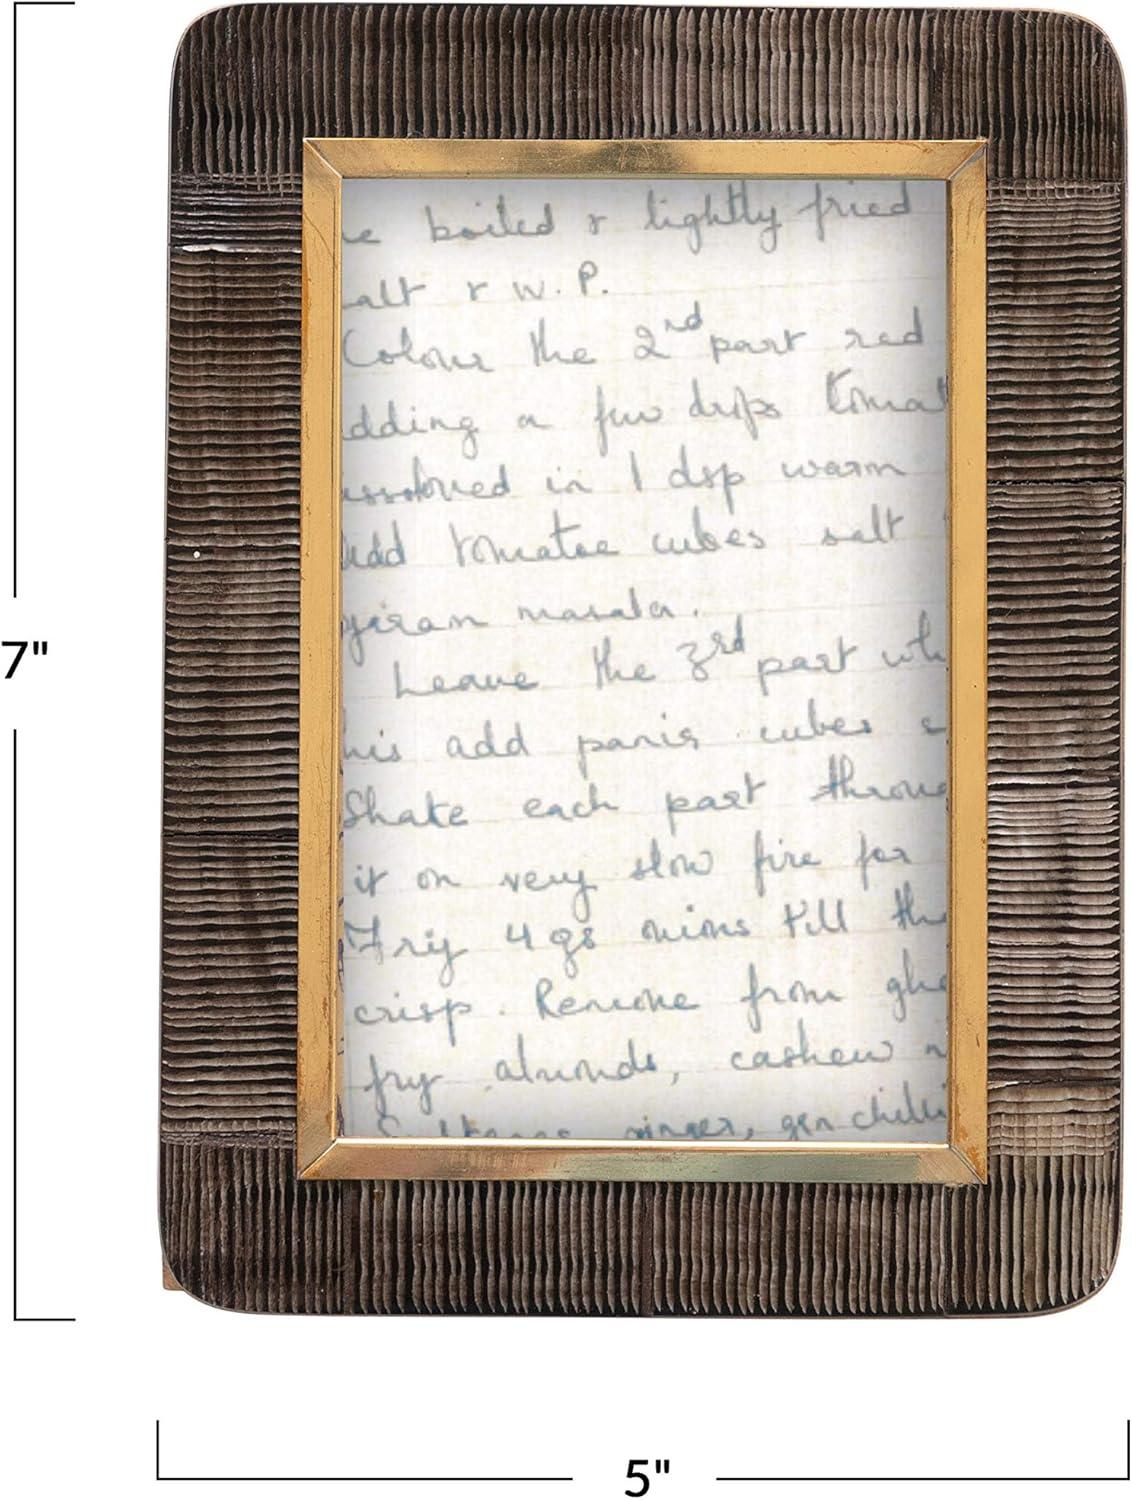 e boiled & lightly fried
alt & W.P.
Colour the 2nd part red
dding a few drops tomat
issolved in 1 dsp warm
Add tomatoe cubes salt
garam masala.
Leave the 3rd part whi
his add panir cubes
Shake each part throu
it on very slow fire for
Fry 4 gs onions till the
crisp. Remove from ghe
fry almonds, cashew n
Sultanas ginger, grn chilli
7"
5"